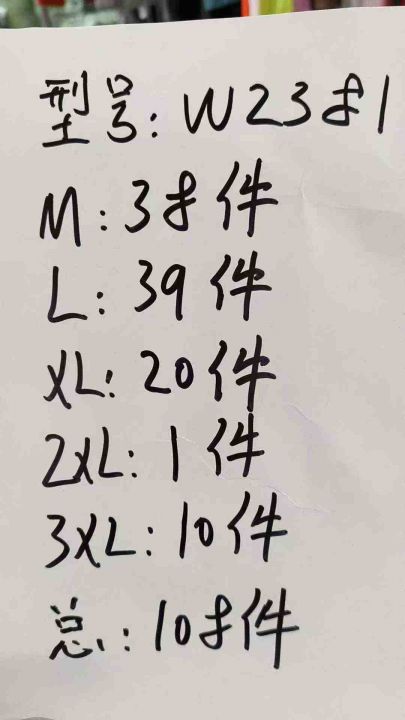 型号: W2381
M: 38件
L: 39件
XL: 20件
2XL: 1件
3XL: 10件
总: 108件